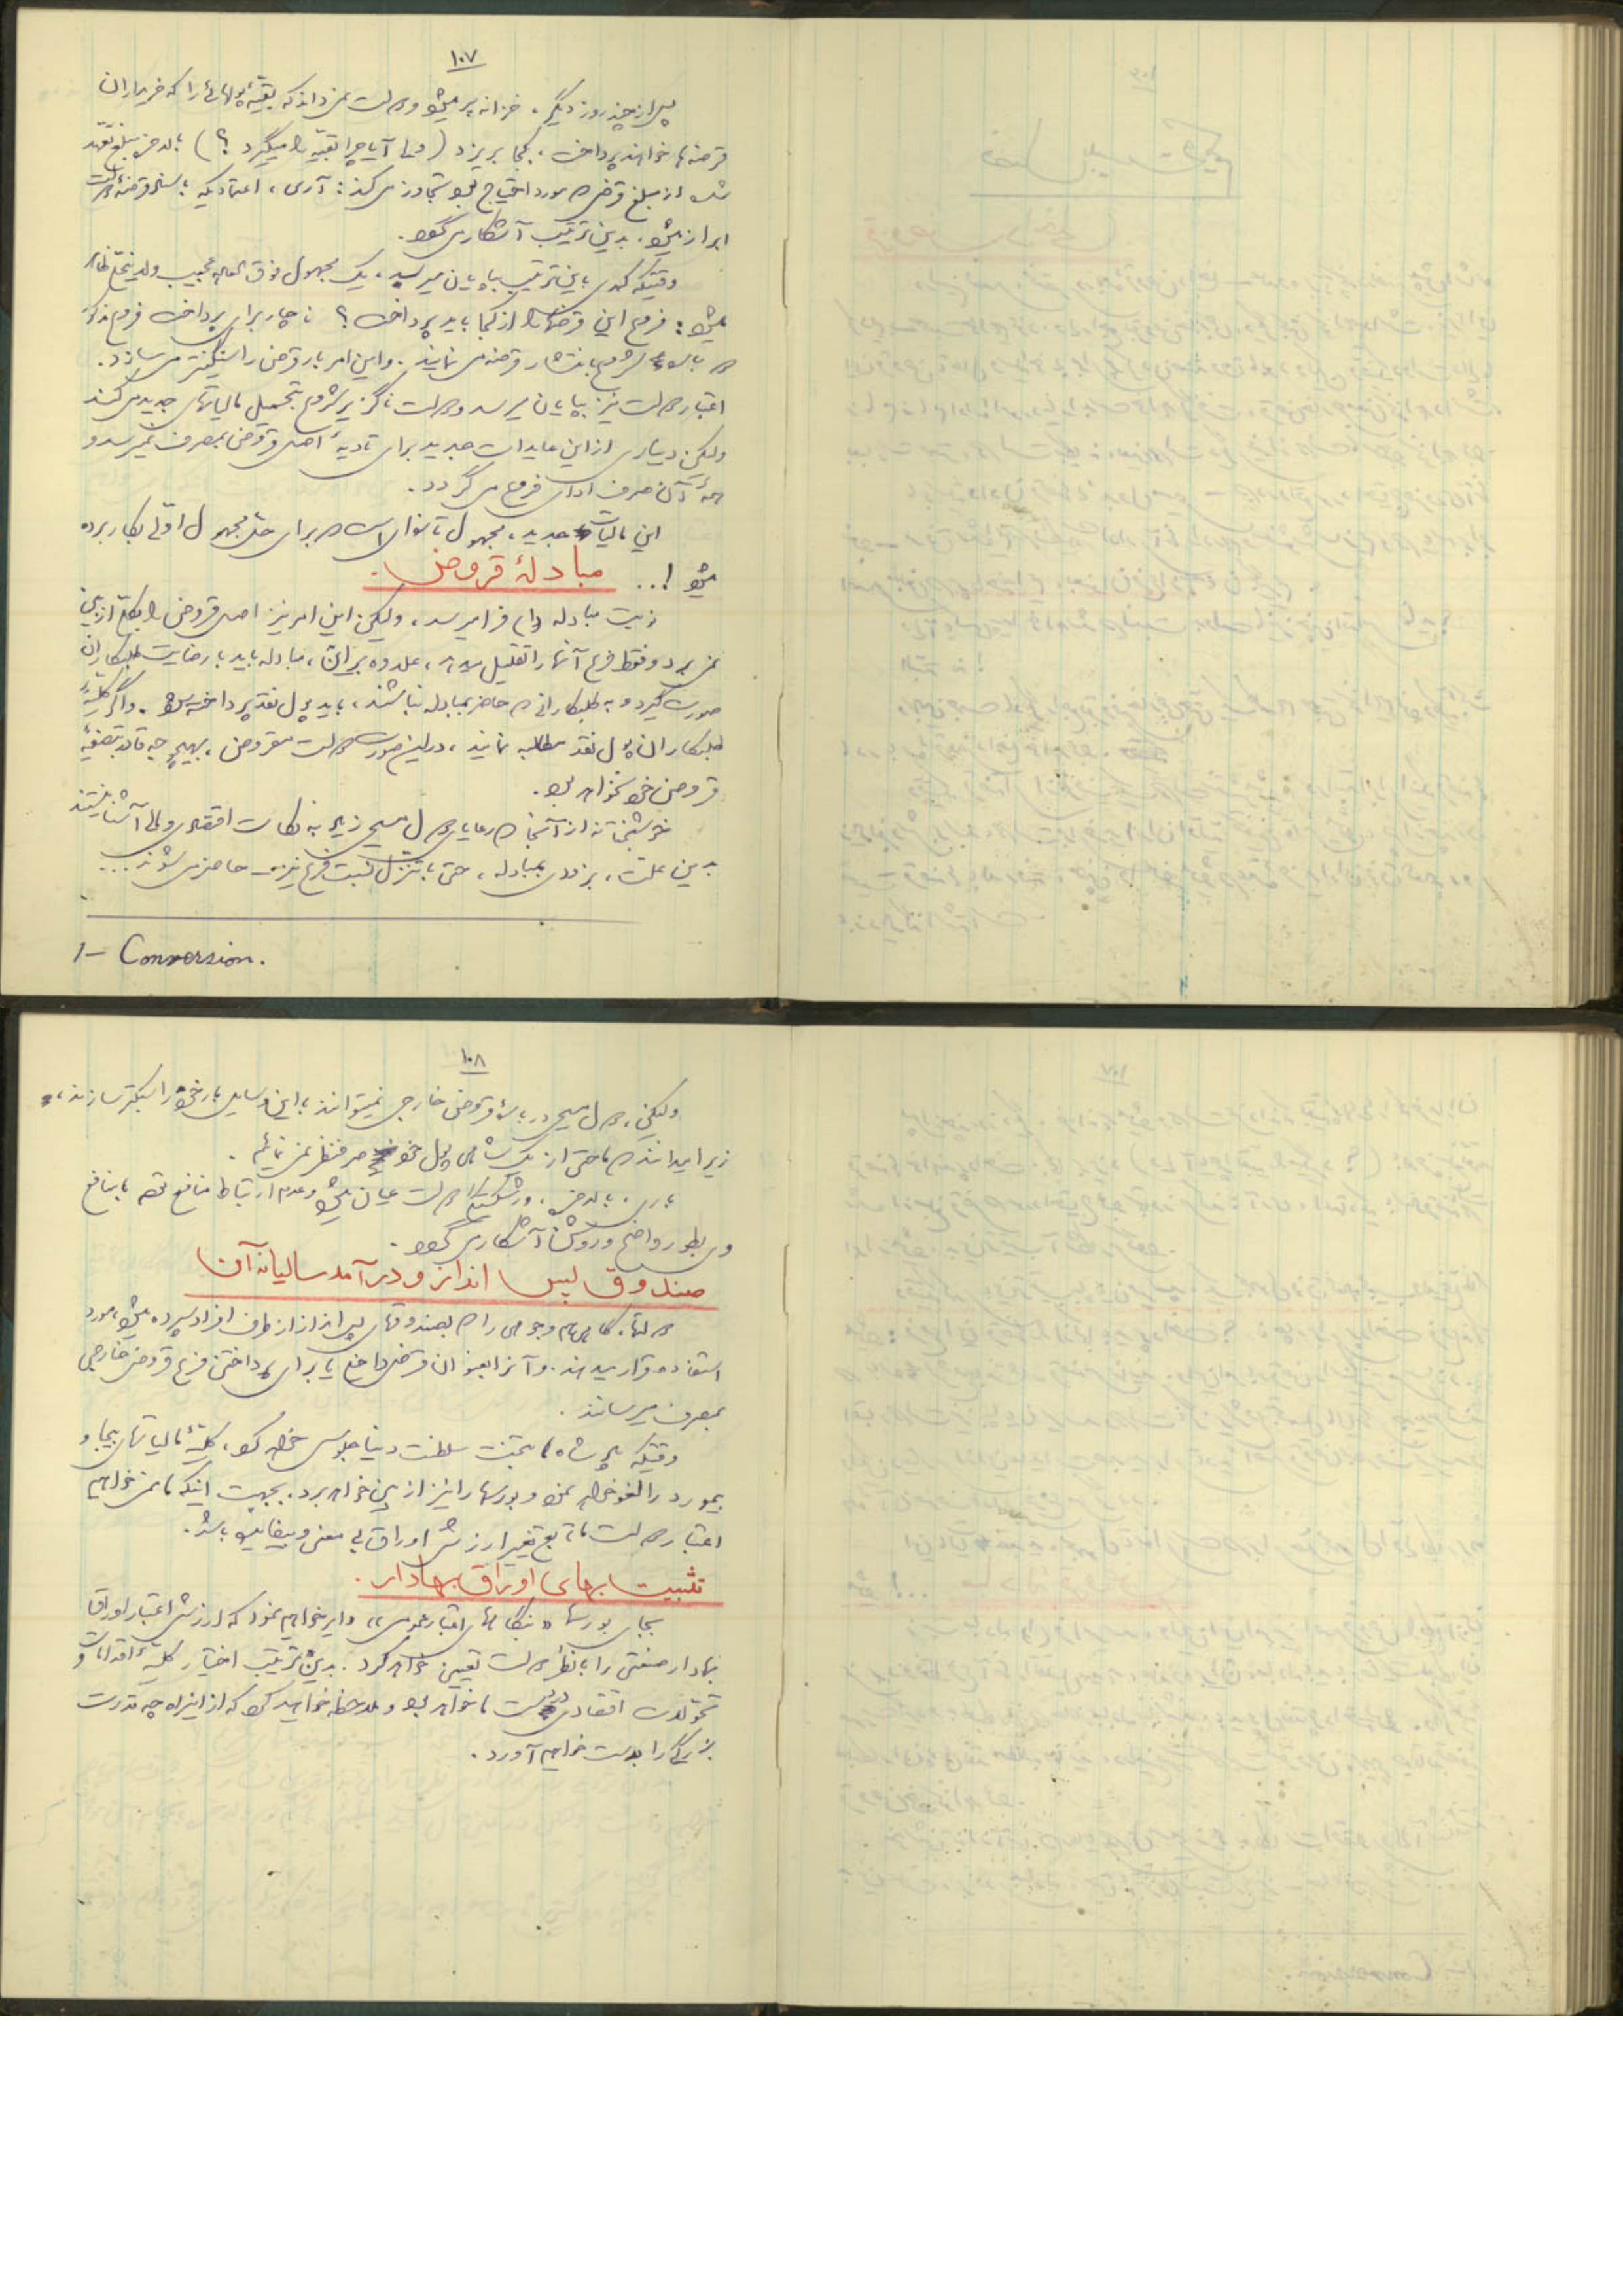 ۱۰۷
پس از چند روز دیگر، خزانه پر میشود و دولت نمیداند که بقیهٔ پولهائی را که خریداران
قرضه‌ها خواهند پرداخت، بکجا بریزد (ولی آیا چرا بقیه را میگیرد ؟) بالاخره مبلغ تعهد
شده از مبلغ قرضه مورد احتیاج تجاوز می‌کند: آری، اعتمادیکه باسناد قرضهٔ دولت
ابراز میشود، بدین ترتیب آشکار می‌گردد.
وقتیکه کمدی باین ترتیب بپایان میرسد، یک مجهول فوق العاده عجیب و لاینحل ظاهر
میشود: فرع این قرضه‌ها را از کجا باید پرداخت ؟ ناچار برای پرداخت فرع مذکور
شروع بانتشار قرضه می‌نمایند. و این امر بار قرض را سنگینتر می‌سازد.
اعتبار دولت نیز بپایان میرسد و دولت ناگزیر شروع بتحمیل مالیاتهای جدید می‌کند
ولیکن دیناری از این عایدات جدید برای تادیهٔ اصل قروض بمصرف نمیرسد و
همهٔ آن صرف ادای فرع می گردد.
این مالیات جدید، مجهول ثانوی است که برای حل مجهول اولی بکار برده
میشود !... مبادلهٔ قروض.
نوبت مبادله وام فرا میرسد، ولیکن این امر نیز اصل قروض را بکلی از بین
نمی‌برد و فقط فرع آنها را تقلیل میدهد، علاوه بر این، مبادله باید با رضایت طلبکاران
صورت گیرد و به طلبکارانی که حاضر بمبادله نباشند، باید پول نقد پرداخته شود. و اگر کلیهٔ
طلبکاران پول نقد مطالبه نمایند، در این صورت دولت مقروض، بهیچوجه قادر بتصفیهٔ
قروض خود نخواهد بود.
خوشبختانه از آنجا که رعایای دول مسیحی زیاد به نکات اقتصادی و مالی آشنا نیستند
بدین علت، بزودی بمبادله، حتی با تنزل نسبت فرع نیز حاضر می شوند...
1- Conversion.
۱۰۸
ولیکن، دول مسیحی در بارهٔ قروض خارجی نمیتوانند با این وسایل بار خود را سبکتر سازند،
زیرا میدانند که ما حتی از یک شاهی پول خود صرفنظر نمی نمائیم.
باری، بالاخره، ورشکستگی دولت عیان میشود و عدم ارتباط منافع توده با منافع
وی بطور واضح و روشن آشکار می گردد.
صندوق پس انداز و درآمد سالیانه آن
دولتها، گاهی هم وجوهی را که بصندوقهای پس انداز از طرف افراد سپرده میشود، مورد
استفاده قرار میدهند. و آنرا بعنوان قرض داخلی یا برای پرداختن فرع قروض خارجی
بمصرف میرسانند.
وقتیکه پادشاه ما بتخت سلطنت دنیا جلوس خواهد کرد، کلیهٔ مالیاتهای بیجا و
بیمورد را لغو خواهد نمود و بورسها را نیز از بین خواهد برد. بجهت اینکه ما نمی خواهیم
اعتبار دولت ما تابع تغییر ارزش اوراق بی معنی و بیفایده باشد.
تثبیت بهای اوراق بهادار.
بجای بورسها «بنگاه‌های اعتبار عمومی» دایر خواهیم نمود که ارزش اعتبار اوراق
بهادار صنعتی را با نظر دولت تعیین خواهد کرد. بدین ترتیب اختیار کلیهٔ اقدامات و
تحولات اقتصادی در دست ما خواهد بود و ملاحظه خواهید کرد که از این راه چه قدرت
بزرگی را بدست خواهیم آورد.